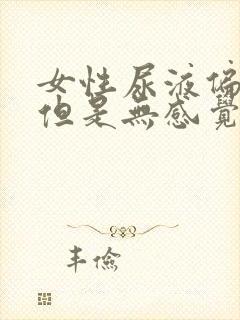 女性尿液偏
但是無感覺
丰儉